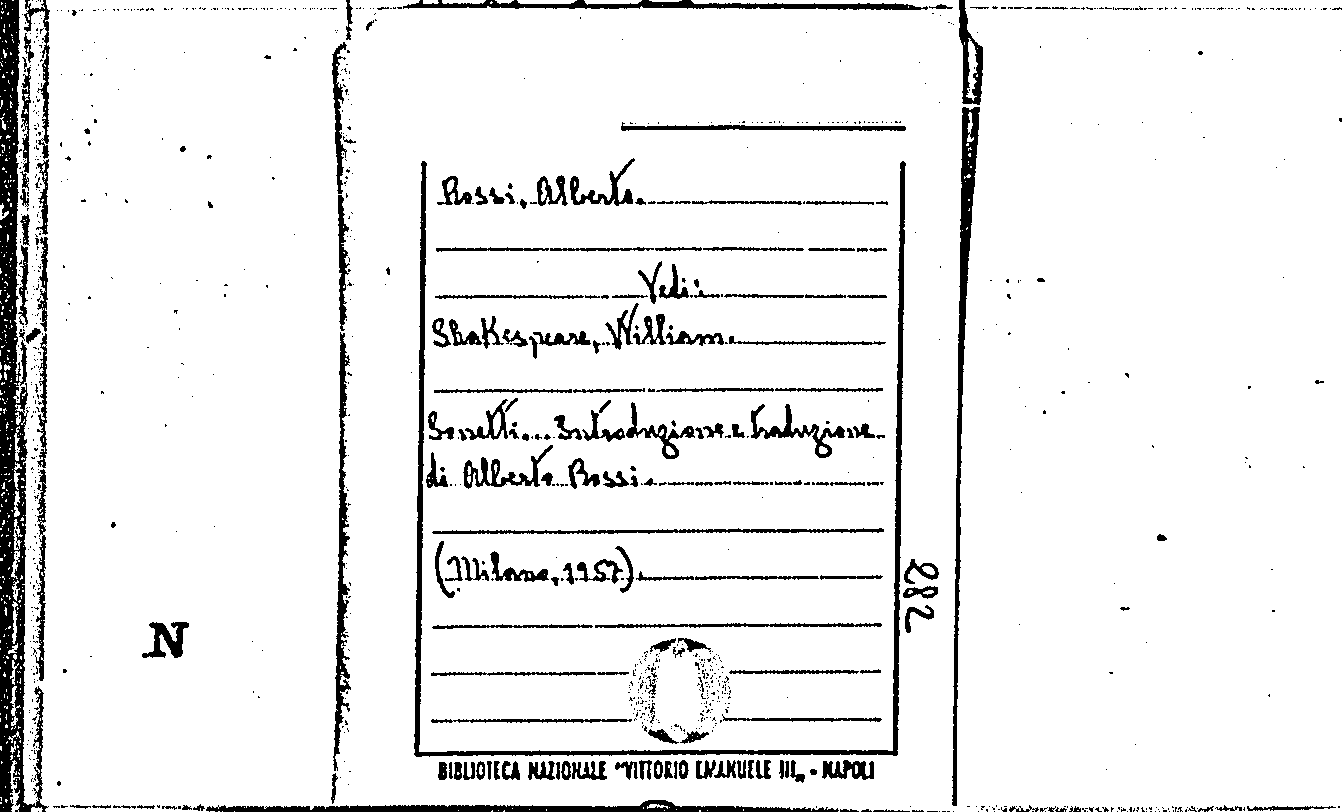 Rossi, Alberto.
Vedi:
Shakespeare, William.
Sonetti... Introduzione e traduzione
di Alberto Rossi.
(Milano, 1957).
282
N
BIBLIOTECA NAZIONALE "VITTORIO EMANUELE III„ - NAPOLI